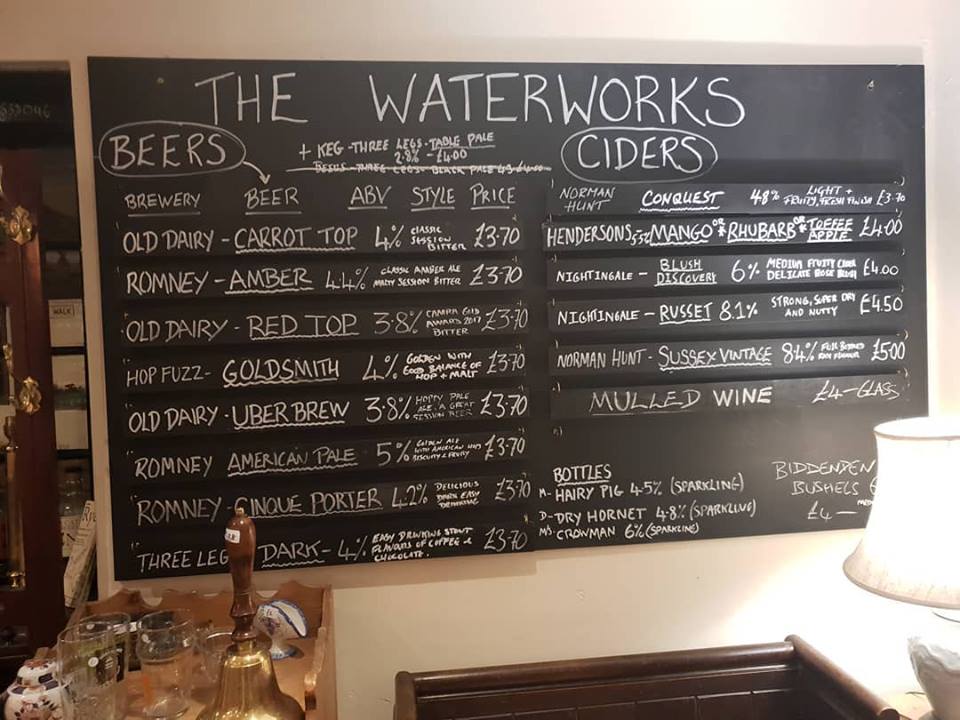 THE WATERWORKS
BEERS
+ KEG - THREE LEGS - TABLE PALE
2.8% - £4.00
BREWERY BEER ABV STYLE PRICE
OLD DAIRY - CARROT TOP 4% CLASSIC SESSION BITTER £3.70
ROMNEY - AMBER 4.4% CLASSIC AMBER ALE MALTY SESSION BITTER £3.70
OLD DAIRY - RED TOP 3.8% CAMRA GOLD AWARDS 2017 BITTER £3.70
HOP FUZZ - GOLDSMITH 4% GOLDEN WITH GOOD BALANCE OF HOP + MALT £3.70
OLD DAIRY - UBER BREW 3.8% HOPPY PALE ALE, A GREAT SESSION BEER £3.70
ROMNEY AMERICAN PALE 5% GOLDEN ALE WITH AMERICAN HOPS BISCUITY & FRUITY £3.70
ROMNEY - CINQUE PORTER 4.2% DELICIOUS DARK EASY DRINKING £3.70
THREE LEG DARK - 4% EASY DRINKING STOUT FLAVOURS OF COFFEE & CHOCOLATE. £3.70
CIDERS
NORMAN HUNT CONQUEST 4.8% LIGHT + FRUITY, FRESH FINISH £3.70
HENDERSONS 5.5% MANGO OR * RHUBARB OR * TOFFEE APPLE £4.00
NIGHTINGALE - BLUSH DISCOVERY 6% MEDIUM FRUITY CIDER DELICATE ROSE BLUSH £4.00
NIGHTINGALE - RUSSET 8.1% STRONG, SUPER DRY AND NUTTY £4.50
NORMAN HUNT - SUSSEX VINTAGE 8.4% FULL BODIED £5.00
MULLED WINE £4 - GLASS
BOTTLES
M - HAIRY PIG 4.5% (SPARKLING)
D - DRY HORNET 4.8% (SPARKLING)
M/S - CROWMAN 6% (SPARKLING)
BIDDENDEN
BUSHELS
£4 -
WALK